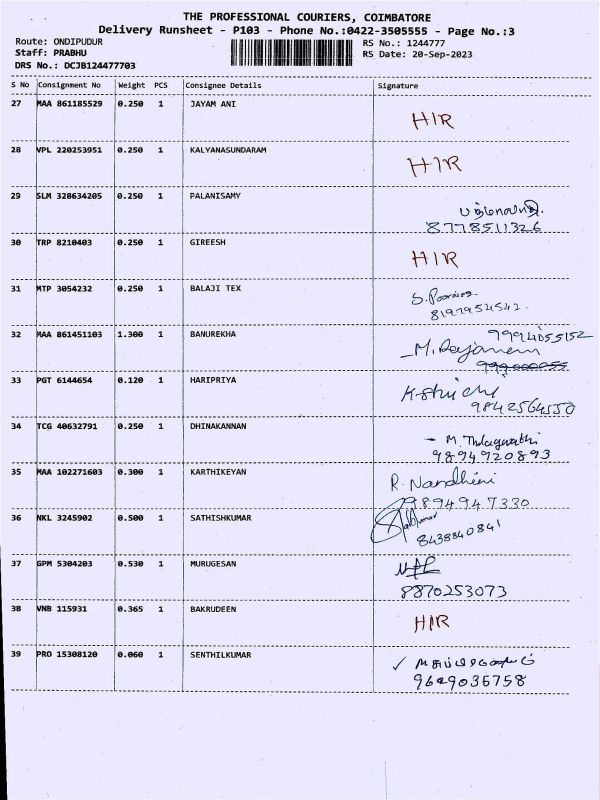 THE PROFESSIONAL COURIERS, COIMBATORE
Delivery Runsheet - P103 - Phone No.:0422-3505555 - Page No.:3
Route: ONDIPUDUR RS No.: 1244777
Staff: PRABHU RS Date: 20-Sep-2023
DRS No.: DCJB124477703
S No Consignment No Weight PCS Consignee Details Signature
27 MAA 861185529 0.250 1 JAYAM ANI
HIR
28 VPL 220253951 0.250 1 KALYANASUNDARAM
HIR
29 SLM 328634205 0.250 1 PALANISAMY
8778511326
30 TRP 8210403 0.250 1 GIREESH
HIR
31 MTP 3054232 0.250 1 BALAJI TEX
S.
8197954542
32 MAA 861451103 1.300 1 BANUREKHA
9994055152
M.
33 PGT 6144654 0.120 1 HARIPRIYA
9842564550
34 TCG 40632791 0.250 1 DHINAKANNAN
- M. Thilagavathi
9894920893
35 MAA 102271603 0.300 1 KARTHIKEYAN
R. Nandhini
9894947330
36 NKL 3245902 0.500 1 SATHISHKUMAR
8438840841
37 GPM 5304203 0.530 1 MURUGESAN
8870253073
38 VNB 115931 0.365 1 BAKRUDEEN
HIR
39 PRO 15308120 0.060 1 SENTHILKUMAR
9629036758